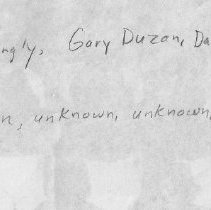 ng'ly, Gary Duzan, Da
n, unknown, unknown,